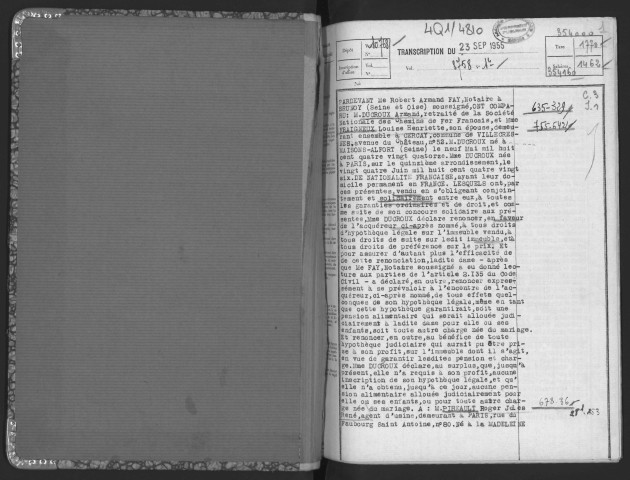 4Q1/4810
354000 1
Dépôt
TRANSCRIPTION DU 23 SEP 1955
Vol. 8758 n° 1
Taxe 1770
1462
354160
PARDEVANT Me Robert Armand FAY, Notaire à
BRUNOY (Seine et Oise) soussigné, ONT COMPA-
RU: M.DUCROUX Armand, retraité de la Société
Nationale des Chemins de Fer Français, et Mme
Louise Henriette, son épouse, demeu-
rant ensemble à CERCAY, commune de VILLECRES-
NES, avenue du Château, n°52. M.DUCROUX né à
MAISONS-ALFORT (Seine) le neuf Mai mil huit
cent quatre vingt quatorze. Mme DUCROUX née
à PARIS, sur le quinzième arrondissement, le
vingt quatre Juin mil huit cent quatre vingt
dix. DE NATIONALITE FRANCAISE, ayant leur do-
micile permanent en FRANCE. LESQUELS ont, par
ces présentes, vendu en s'obligeant conjoin-
tement et solidairement entre eux, à toutes
les garanties ordinaires et de droit, et com-
me suite de son concours solidaire aux pré-
sentes, Mme DUCROUX déclare renoncer, en faveur
de l'acquéreur ci-après nommé, à tous droits
d'hypothèque légale sur l'immeuble vendu, à
tous droits de suite sur ledit immeuble, et à
tous droits de préférence sur le prix. Et
pour assurer d'autant plus l'efficacité de
de cette renonciation, ladite dame - après
que Me FAY, Notaire soussigné a eu donné lec-
ture aux parties de l'article 2.135 du Code
Civil - a déclaré, en outre, renoncer expres-
sément à se prévaloir à l'encontre de l'ac-
quéreur, ci-après nommé, de tous effets quel-
conques de son hypothèque légale, même en tant
que cette hypothèque garantirait, soit une
pension alimentaire qui serait allouée judi-
ciairement à ladite dame pour elle ou ses
enfants, soit toute autre charge née du mariage.
Et renoncer, en outre, au bénéfice de toute
hypothèque judiciaire qui aurait pu être pri-
se à son profit, sur l'immeuble dont il s'agit,
en vue de garantir lesdites pension et char-
ge. Mme DUCROUX déclare, au surplus, que, jusqu'à
présent, elle n'a requis à son profit, aucune
inscription de son hypothèque légale, et qu'
elle n'a obtenu, jusqu'à ce jour, aucune pen-
sion alimentaire allouée judiciairement pour
elle ou ses enfants, ou pour toute autre char-
ge née du mariage. A : M. Roger Jules
René, agent d'usine, demeurant à PARIS, rue du
Faubourg Saint Antoine, n°80. Né à la MADELEINE